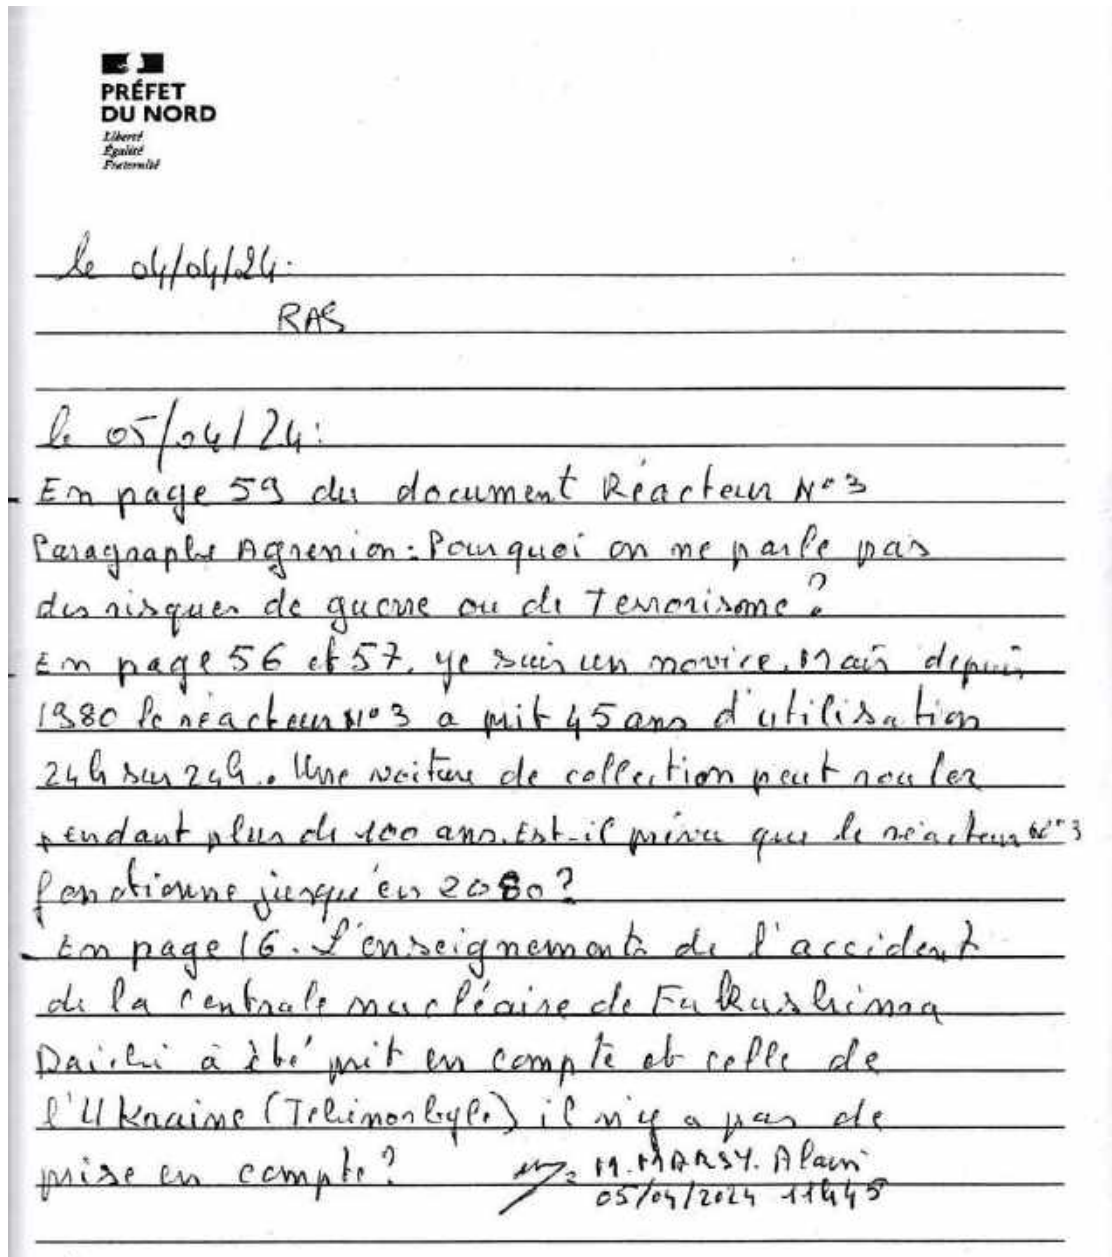 PRÉFET
DU NORD
Liberté
Égalité
Fraternité
le 04/04/24.
RAS
le 05/04/24:
- En page 59 du document Réacteur N°3
Paragraphe Agression: Pourquoi on ne parle pas
des risques de guerre ou de Terrorisme?
- En page 56 et 57. je suis un novice. Mais depuis
1980 le réacteur N°3 a prit 45 ans d'utilisation
24h sur 24h. Une voiture de collection peut rouler
pendant plus de 100 ans. Est-il prévu que le réacteur N°3
fonctionne jusqu'en 2080?
- En page 16. L'enseignements de l'accident
de la centrale nucléaire de Fukushima
Daichi à été prit en compte et celle de
l'Ukraine (Tchinorbyle) il n'y a pas de
mise en compte?
M. MARSY. Alain
05/04/2024 11h45